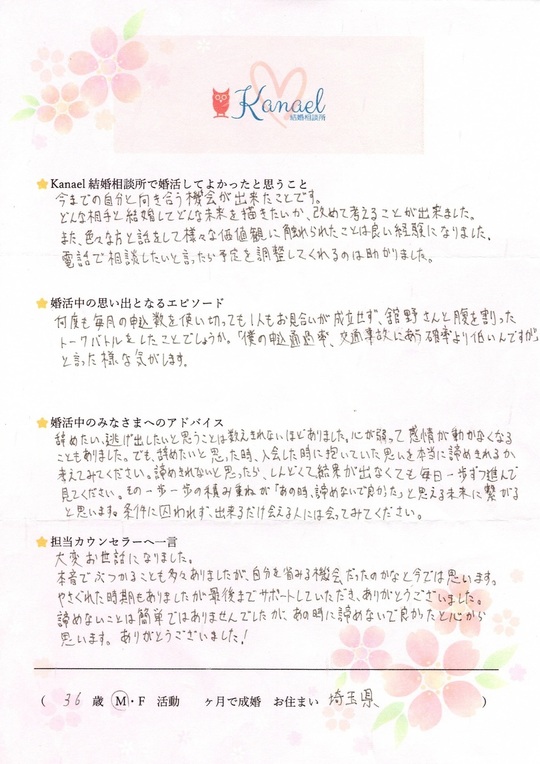 Kanael
結婚相談所
Kanael 結婚相談所で婚活してよかったと思うこと
今までの自分と向き合う機会が出来たことです。
どんな相手と結婚してどんな未来を描きたいか、改めて考えることが出来ました。
また、色々な方と話をして様々な価値観に触れられたことは良い経験になりました。
電話で相談したいと言ったら予定を調整してくれるのは助かりました。
婚活中の思い出となるエピソード
何度も毎月の申込数を使い切っても1人もお見合いが成立せず、舘野さんと腹を割った
トークバトルをしたことでしょうか。「僕の申込通過率、交通事故にあう確率より低いんですが」
と言った様な気がします。
婚活中のみなさまへのアドバイス
辞めたい、逃げ出したいと思うことは数えきれないほどありました。心が弱って感情が動かなくなる
こともありました。でも、辞めたいと思った時、入会した時に抱いていた思いを本当に諦めきれるか
考えてみてください。諦めきれないと思ったら、しんどくて結果が出なくても毎日一歩ずつ進んで
見てください。その一歩一歩の積み重ねが「あの時、諦めないで良かった」と思える未来に繋がる
と思います。条件に囚われず、出来るだけ会える人には会ってみてください。
担当カウンセラーへ一言
大変お世話になりました。
本音でぶつかることも多々ありましたが、自分を省みる機会だったのかなと今では思います。
やさぐれた時期もありましたが最後までサポートしていただき、ありがとうございました。
諦めないことは簡単ではありませんでしたが、あの時に諦めないで良かったと心から
思います。ありがとうございました!
( 36 歳 M・F 活動 ヶ月で成婚 お住まい 埼玉県 )